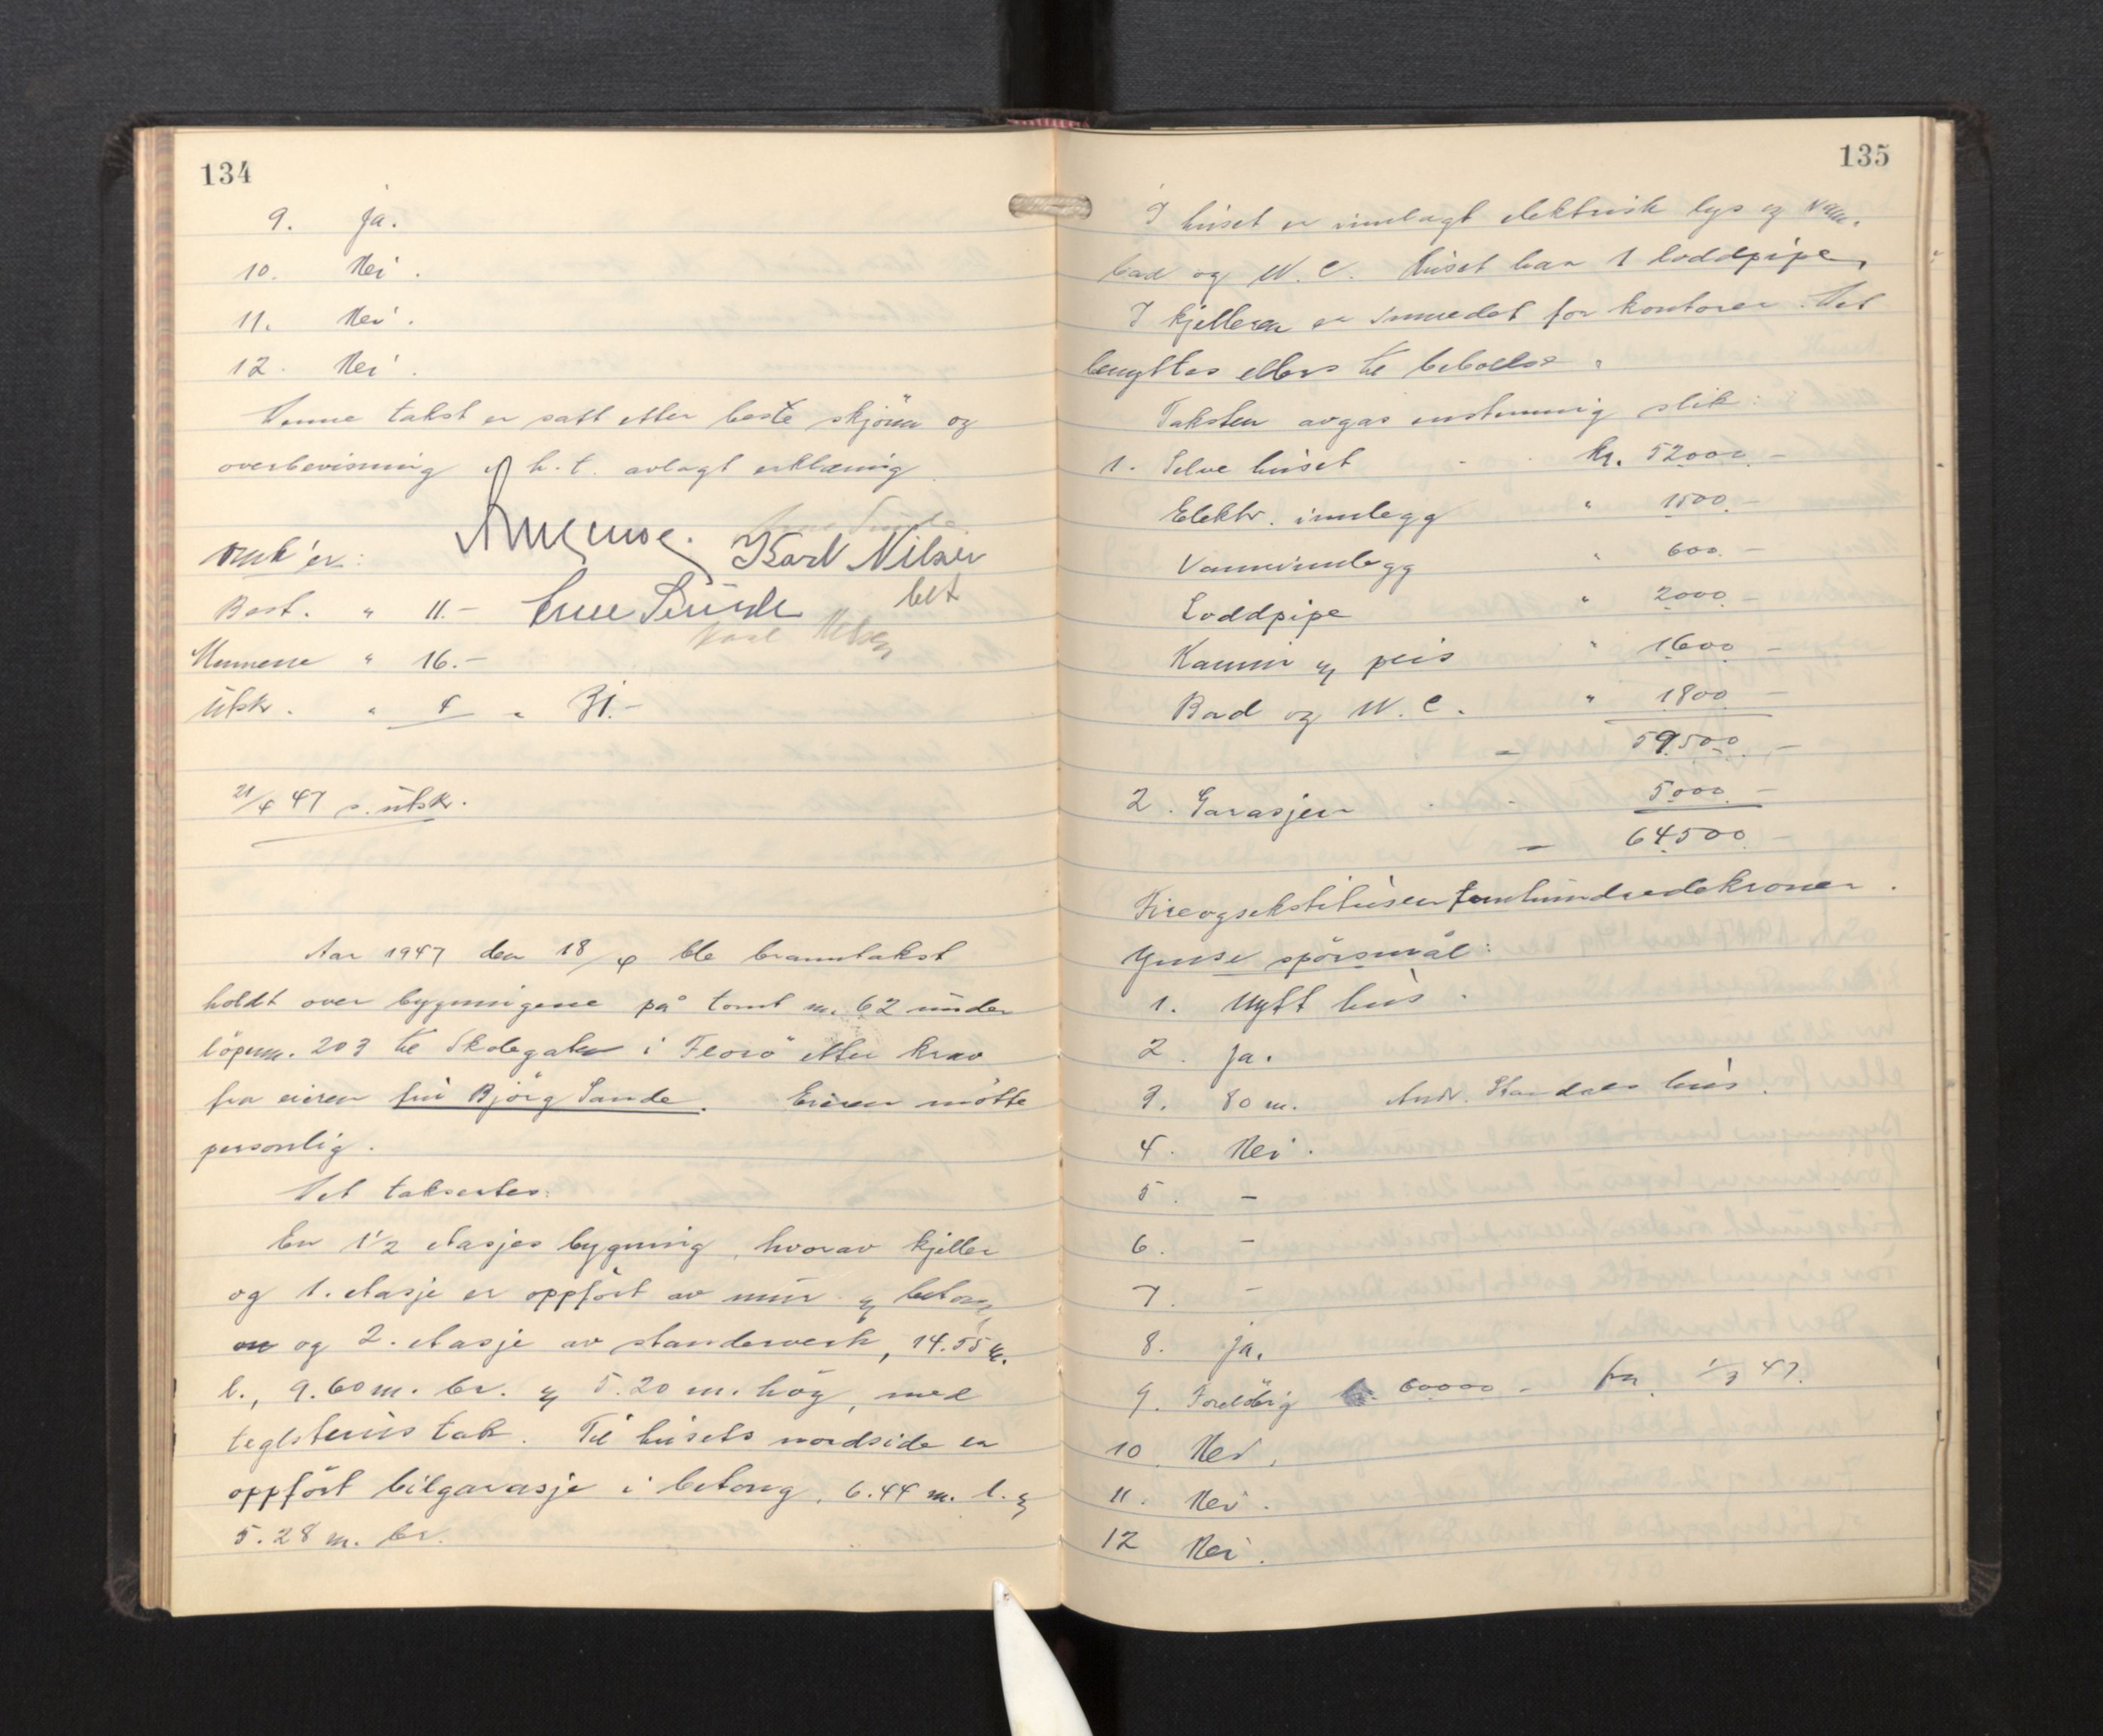 134
9. Ja.
10. Nei.
11. Nei.
12. Nei.
Denne takst er satt etter beste skjönn og
overbevisning h. t. avlagt erklæring.
Omk'er: Karl Nilsen
Best. " 11.- Arne Sunde bet
Mennene " 16.-
Utskr. " 4 " 31.-
21/4 47 s. utskr.
Aar 1947 den 18/4 ble branntakst
holdt over bygningene på tomt nr. 62 under
löpenr. 203 til Skolegaten i Florö etter krav
fra eieren frú Björg Sande. Eieren mötte
personlig.
Det taksertes:
En 1½ etasjes bygning, hvorav kjeller
og 1. etasje er oppfört av mur og betong,
og 2. etasje av standerverk, 14.55 m.
l., 9.60 m. br. og 5.20 m. höy, med
teglsteinstak. Til húsets nordside er
oppfört bilgarasje i betong, 6.44 m. l. og
5.28 m. br.
135
I húset er innlagt elektrisk lys og vann.
bad og W. C. Húset har 1 loddpipe,
I kjelleren er innredet for kontorer. Det
benyttes ellers til beboelse.
Taksten avgas enstemmig slik:
1. Selve húset kr. 52000.-
Elektr. innlegg " 1500.-
Vanninnlegg " 600.-
Loddpipe " 2000.-
Kamin og peis " 1600.-
Bad og W. C. " 1800.-
= 59500.-
2. Garasjen 5000.-
= 64500.-
Fireogsekstitúsenfemhundredekroner.
Ymse spörsmål:
1. Nytt hús.
2. Ja.
3. 80 m. Andr. Standals hús.
4. Nei.
5. -
6. -
7. -
8. Ja.
9. Forelöbig 60000 - fra 1/3 47.
10. Nei.
11. Nei.
12 Nei.